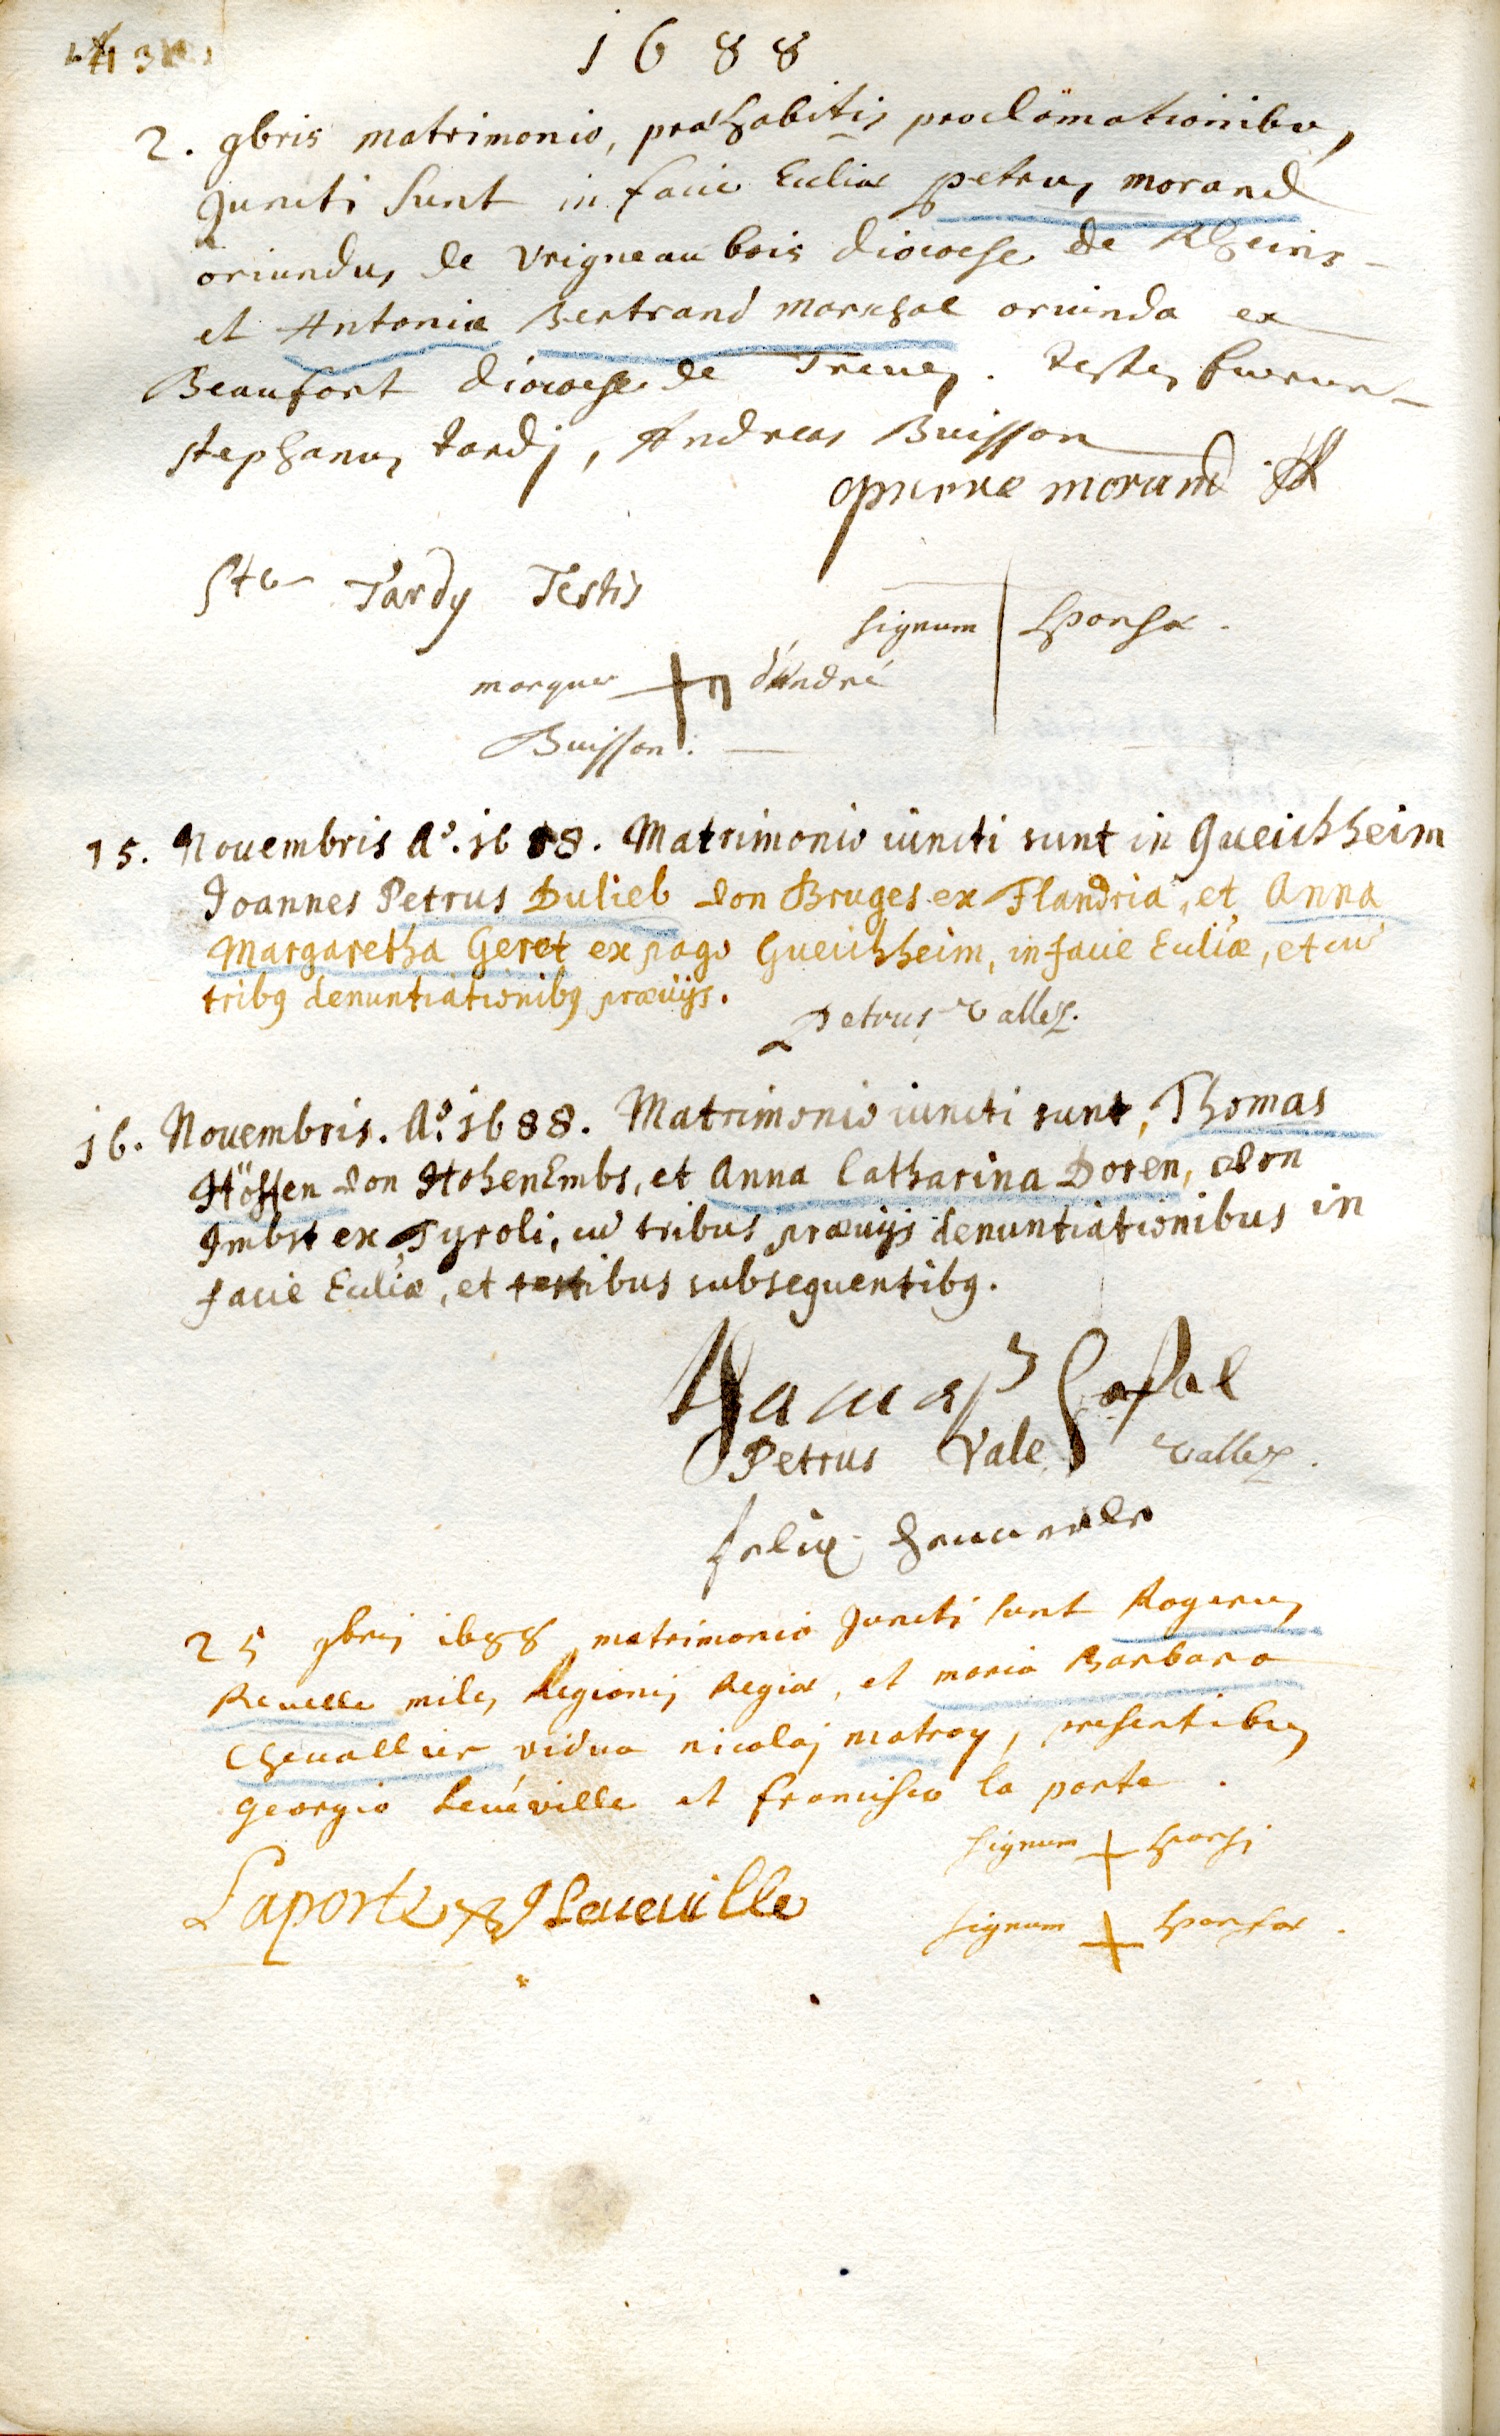 1688
2. 9bris matrimonio, præhabitis proclamationibus,
Juncti sunt in facie Eccliæ petrus morand
oriundus de vrigneaubois dioocese de Rheins
et Antonia Bertrand marchal oriunda ex
Beaufort dioocese de Treves. testes fuerun
stephanus tardij, Andreas Buisson
pierre morand
Ste Tardy Testis
signum sponsæ.
marque d'André
Buisson.
15. Novembris Aº. 1688. Matrimonio iuncti sunt in Queichheim
Joannes Petrus Dulieb von Bruges ex Flandria, et Anna
Margaretha Geret ex pago Queichheim, in facie Eccliæ, et cū
tribꝰ denuntiationibꝰ prævijs.
Petrus Vallez.
16. Novembris. Aº. 1688. Matrimonio iuncti sunt, Thomas
Hössen von HohenEmbs, et Anna Catharina Doren, von
Imbst ex Tyroli, cū tribus præviis denuntiationibus in
facie Eccliæ, et testibus subsequentibꝰ.
Petrus Vale Vallez.
felix
25 9bris 1688 matrimonio Juncti sunt Rogerus
Revelle miles Legionis Regiæ, et maria Barbara
Chevallier vidua nicolaj matroy, presentibus
georgio Levéville et francisco la porte.
signum + sponsi
Laporte JLeveville
signum + sponsæ.